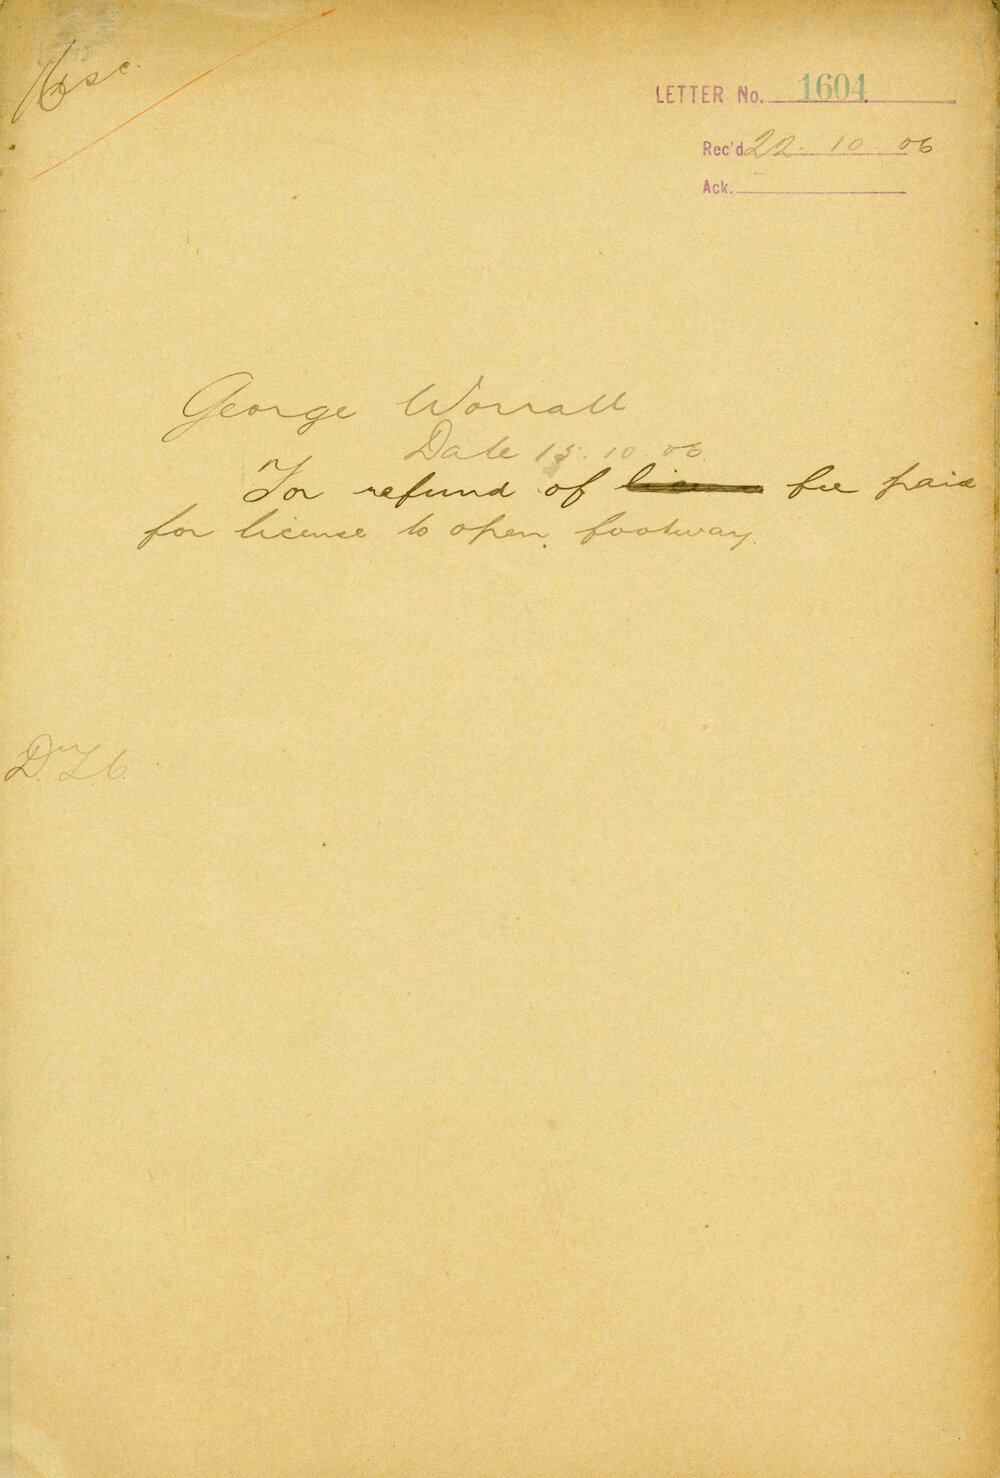 LETTER No. 1604
Rec'd 22. 10 06
Ack.
George Worrall
Date 15.10 06.
For refund of fee paid
for license to open footway.